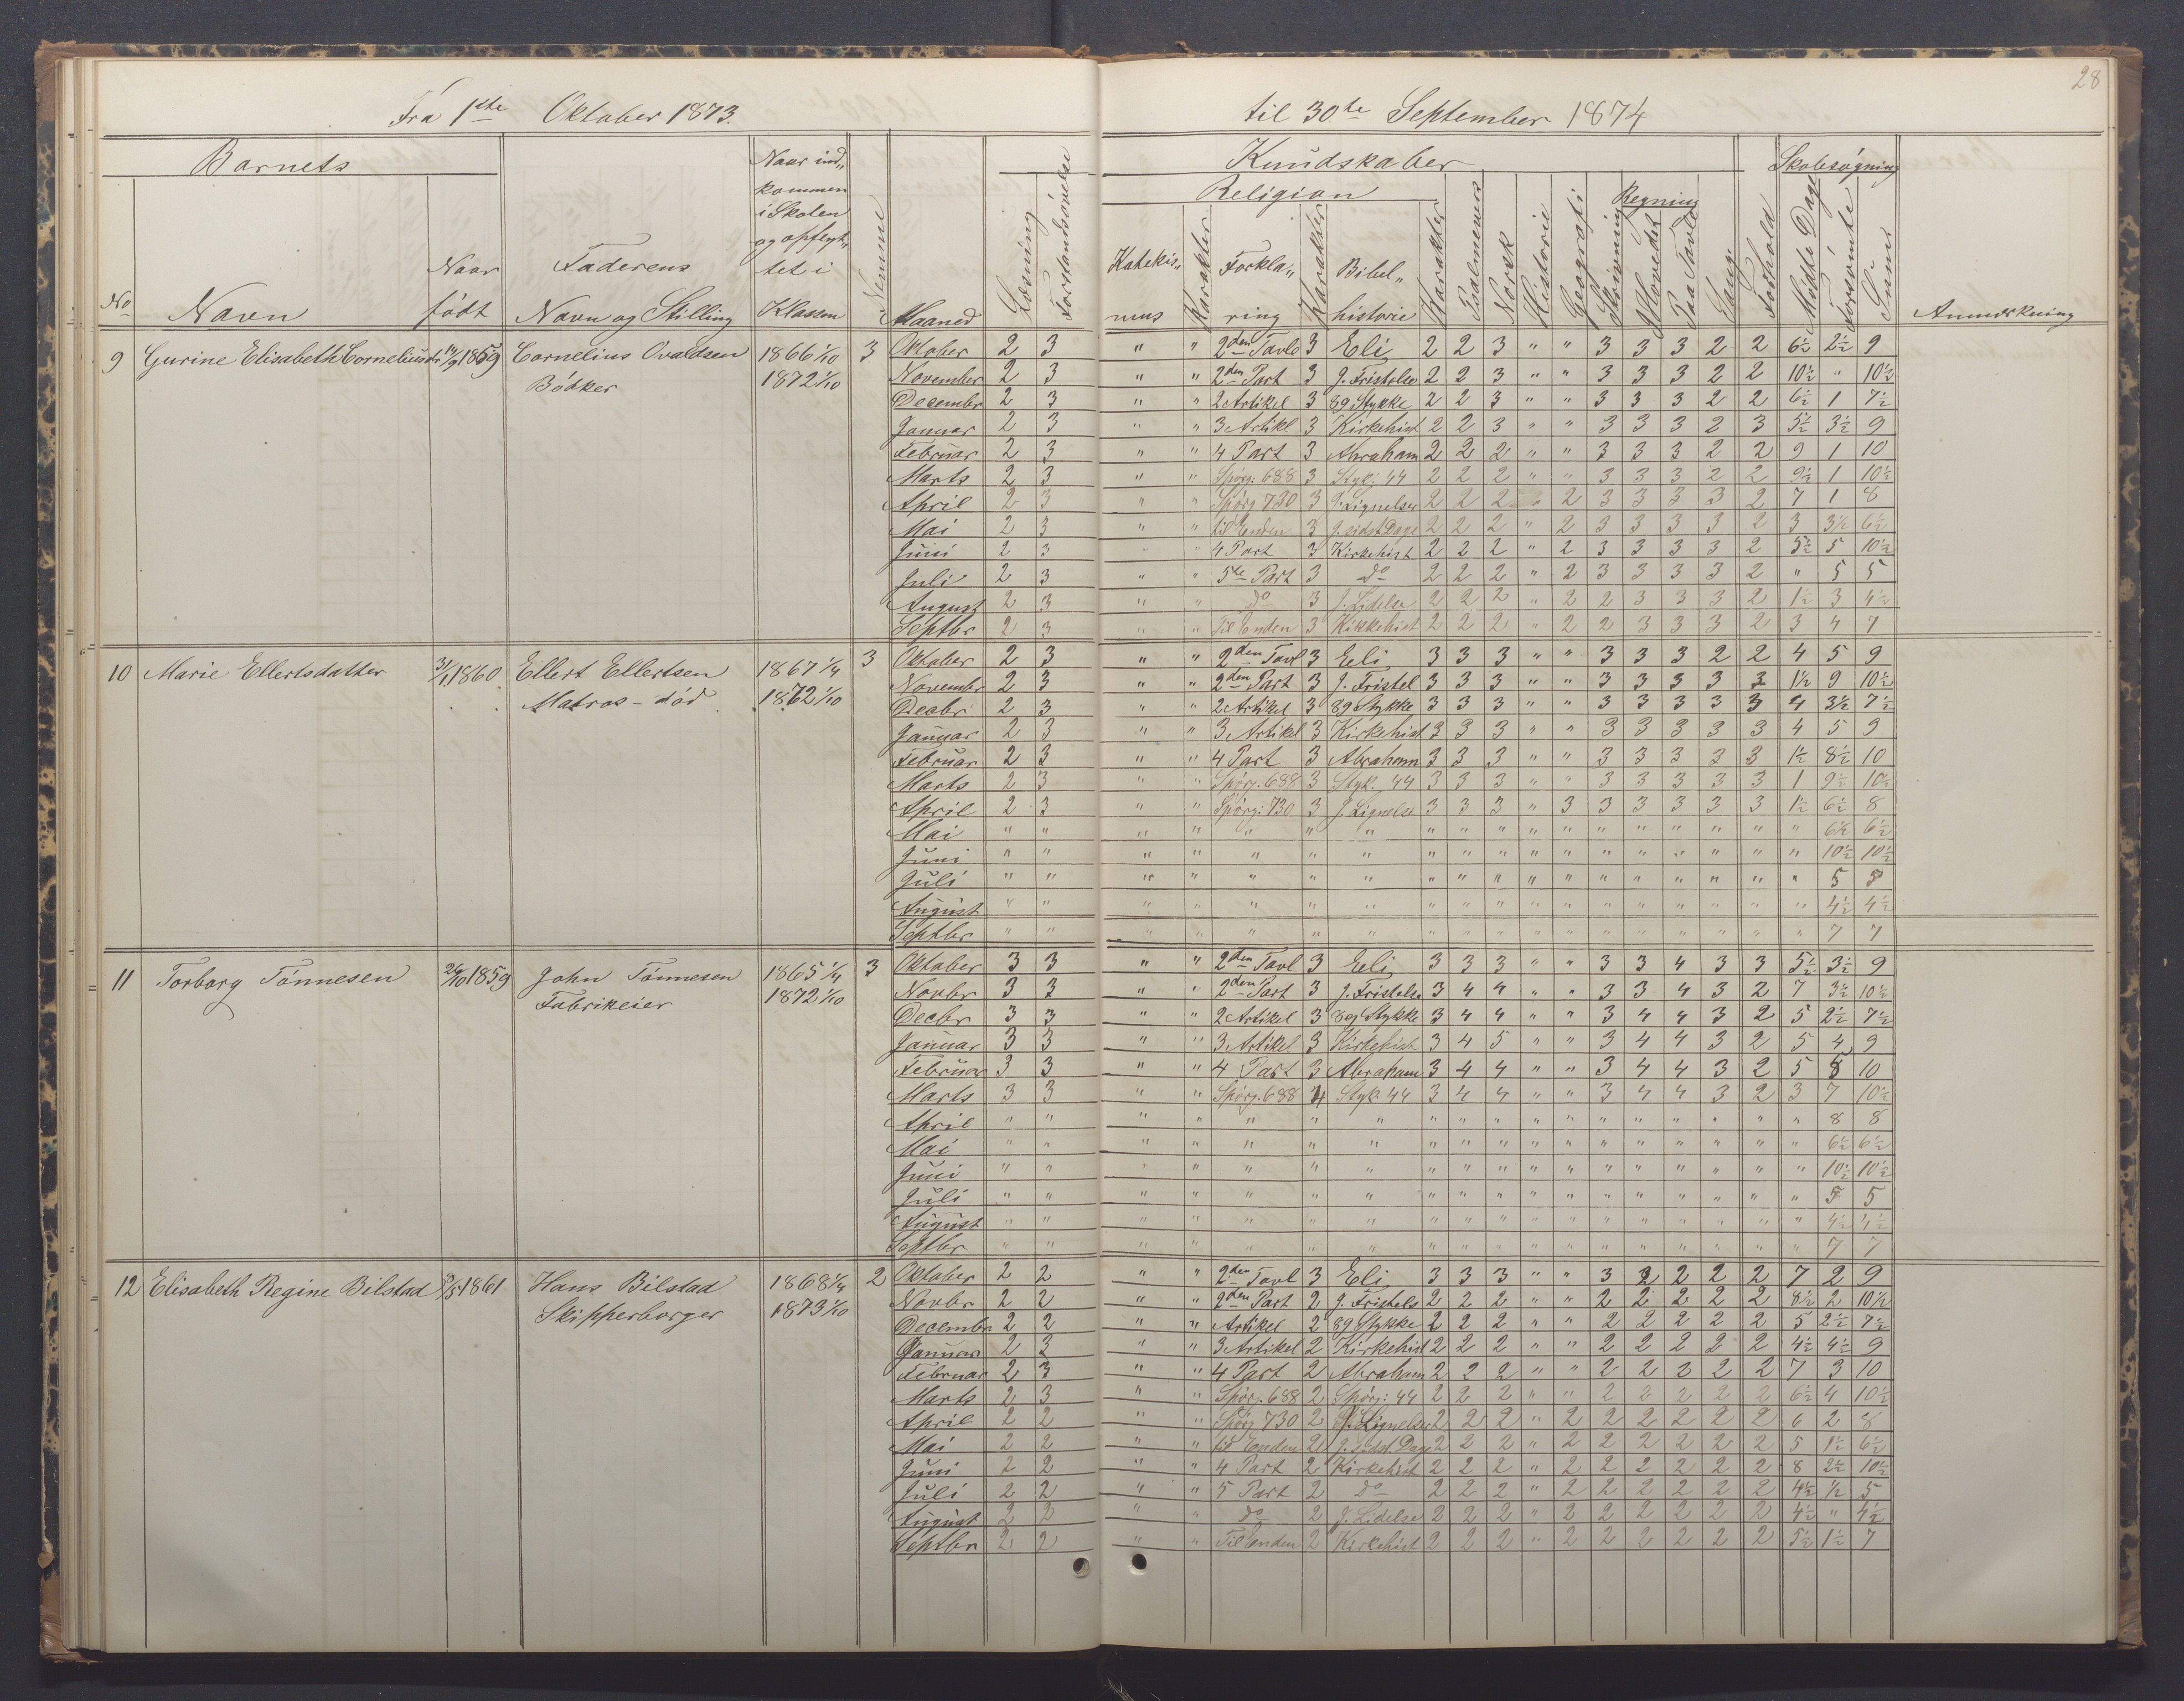 28
Fra 1ste Oktober 1873. til 30te September 1874
Barnets Naar ind„ Kundskaber Skolesøgning
kommen i Skolen og opflyt„ Religion Regning
No Navn Naar født Faderens Navn og Stilling tet i Klassen Nemme Maaned Læsning Forstandsøvelse Katekis„mus Karakter Forkla„ring Karakter Bibel„historie Karakter Psalmevers Norsk Historie Geografi Skrivning Hovedet Paa Tavle Sang Forhold Mødte Dage Forsømte Sum Anmerkning
9 Gurine Elisabeth Corneliusdr 1859 Cornelius Ovaldsen 1866 1/10 3 Oktober 2 3 " " 2den Tavle 3 Eli 2 2 3 " " 3 3 3 2 2 6½ 2½ 9
Bødker 1872 1/10 November 2 3 " " 2den Part 3 J. Fristelse 2 2 3 " " 3 3 3 2 2 10½ " 10½
Decembr 2 3 " " 2 Artikel 3 89 Stykke 2 2 3 " " 3 3 3 2 2 6½ 1 7½
Januar 2 3 " " 3 Artikl 3 Kirkehist 2 2 3 " " 3 3 3 2 3 5½ 3½ 9
Februar 2 3 " " 4 Part 3 Abraham 2 2 2 " " 3 3 3 2 2 9 1 10
Marts 2 3 " " Spørg. 688 3 Styk: 44 2 2 2 " " 3 3 3 2 2 9½ 1 10½
April 2 3 " " Spørg 730 3 J. Lignelser 2 2 2 2 3 3 3 3 2 7 1 8
Mai 2 3 " " til Enden 3 J. sidst Dage 2 2 2 " 2 3 3 3 3 2 3 3½ 6½
Juni 2 3 " " 4 Part 3 Kirkehist 2 2 2 " 2 3 3 3 3 2 5½ 5 10½
Juli 2 3 " " 5te Part 3 do 2 2 2 " 2 3 3 3 3 2 " 5 5
August 2 3 " " do 3 J. Lidelse 2 2 2 " 2 2 3 3 3 2 1½ 3 4½
Septbr 2 3 " " Til Enden 3 Kikkehist 2 2 2 " 2 2 3 3 3 2 3 4 7
10 Marie Ellertsdatter 31/1 1860 Ellert Ellertsen 1867 1/4 3 Oktober 2 3 " " 2den Tavl 3 Eeli 3 3 3 " " 3 3 3 2 2 4 5 9
Matros - død 1872 1/10 Novembr 2 3 " " 2den Part 3 J. Fristel 3 3 3 " " 3 3 3 3 3 1½ 9 10½
Decbr 2 3 " " 2 Artikel 3 89 Stykke 3 3 3 " " 3 3 3 3 3 4 3½ 7½
Januar 2 3 " " 3 Artikel 3 Kirkehist 3 3 3 " " 3 3 3 3 3 4 5 9
Februar 2 3 " " 4 Part 3 Abraham 3 3 3 " " 3 3 3 3 3 1½ 8½ 10
Marts 2 3 " " Spørg. 688 3 Styk. 44 3 3 3 " " 3 3 3 3 3 1 9½ 10½
April 2 3 " " Spørg: 730 3 J. Lignelse 3 3 3 " 3 3 3 3 3 3 1½ 6½ 8
Mai " " " " " " " " " " " " " " " " " " 6½ 6½
Juni " " " " " " " " " " " " " " " " " " 10½ 10½
Juli " " " " " " " " " " " " " " " " " " 5 5
August " " " " " " " " " " " " " " " " " " 4½ 4½
Septbr " " " " " " " " " " " " " " " " " " 7 7
11 Torborg Tönnesen 26/10 1859 John Tönnesen 1865 1/4 3 Oktober 3 3 " " 2den Tavl 3 Eeli 3 3 3 " " 3 3 4 3 3 5½ 3½ 9
Fabrikeier 1872 1/10 Novbr 3 3 " " 2den Part 3 J. Fristelse 3 4 4 " " 3 3 4 3 2 7 3½ 10½
Decbr 3 3 " " 2 Artikel 3 89 Stykke 3 4 4 " " 3 4 4 3 2 5 2½ 7½
Januar 3 3 " " 3 Artikel 3 Kirkehist 3 4 5 " " 3 4 4 3 2 5 4 9
Februar 3 3 " " 4 Part 3 Abraham 3 4 4 " " 3 4 4 3 2 5 5 10
Marts 3 3 " " Spørg. 688 4 Styk 44 3 4 4 " " 3 4 4 3 2 3 7 10½
April " " " " " " " " " " " " " " " " " " 8 8
Mai " " " " " " " " " " " " " " " " " " 6½ 6½
Juni " " " " " " " " " " " " " " " " " " 10½ 10½
Juli " " " " " " " " " " " " " " " " " " 5 5
August " " " " " " " " " " " " " " " " " " 4½ 4½
Septbr " " " " " " " " " " " " " " " " " " 7 7
12 Elisabeth Regine Bilstad 1861 Hans Bilstad 1868 1/4 2 Oktober 2 2 " " 2den Tavl 3 Eli 3 3 3 " " 3 2 2 2 2 7 2 9
Skipperborger 1873 1/10 Novbr 2 2 " " 2den Part 2 J. Fristels 2 2 2 " " 2 2 2 2 2 8½ 2 10½
Decembr 2 2 " " Artikel 2 89 Stykke 2 2 2 " " 2 2 2 2 2 5 2½ 7½
Januar 2 3 " " 3 Artikel 2 Kirkehist 2 2 2 " " 2 2 2 2 2 4½ 4½ 9
Februar 2 3 " " 4 Part 2 Abraham 2 2 2 " " 2 2 2 2 2 7 3 10
Marts 2 3 " " Spørg. 688 2 Spørg: 44 2 2 2 " " 2 2 2 2 2 6½ 4 10½
April 2 2 " " Spørg 730 2 J. Lignelser 2 2 2 " 2 2 2 2 2 2 6 2 8
Mai 2 2 " " til Enden 2 J. sidst. Dage 2 2 2 " 2 2 2 2 2 2 5 1½ 6½
Juni 2 2 " " 4 Part 2 Kirkehist 2 2 2 " 2 2 2 2 2 2 8 2½ 10½
Juli 2 2 " " 5 Part 2 do 2 2 2 " 2 2 2 2 2 2 4½ ½ 5
August 2 2 " " do 2 J. Lidelse 2 2 2 " 2 2 2 2 2 2 4½ " 4½
Septbr 2 2 " " Til Enden 2 Kirkehist 2 2 2 " 2 2 2 2 2 2 5½ 1½ 7